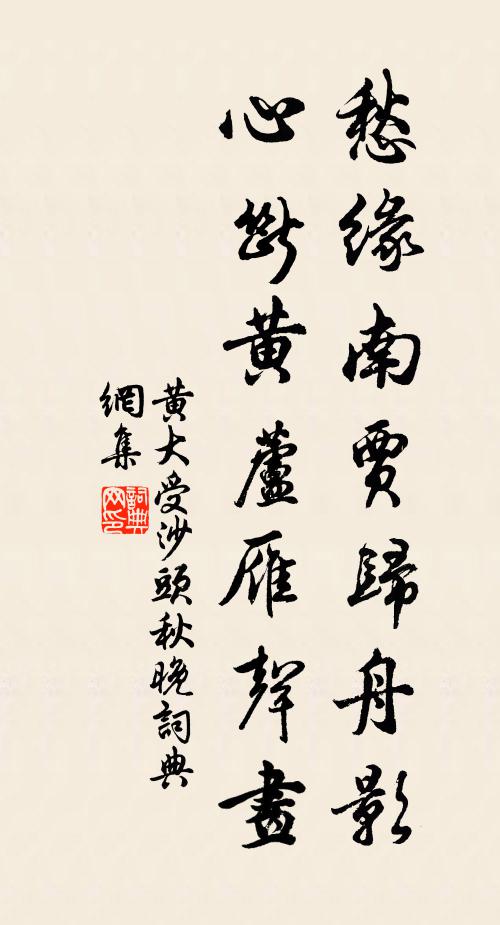 愁緣南賈歸舟影
心斷黃蘆雁聲畫
黃大受沙頭秋晚詞典
網集
詞典
网印